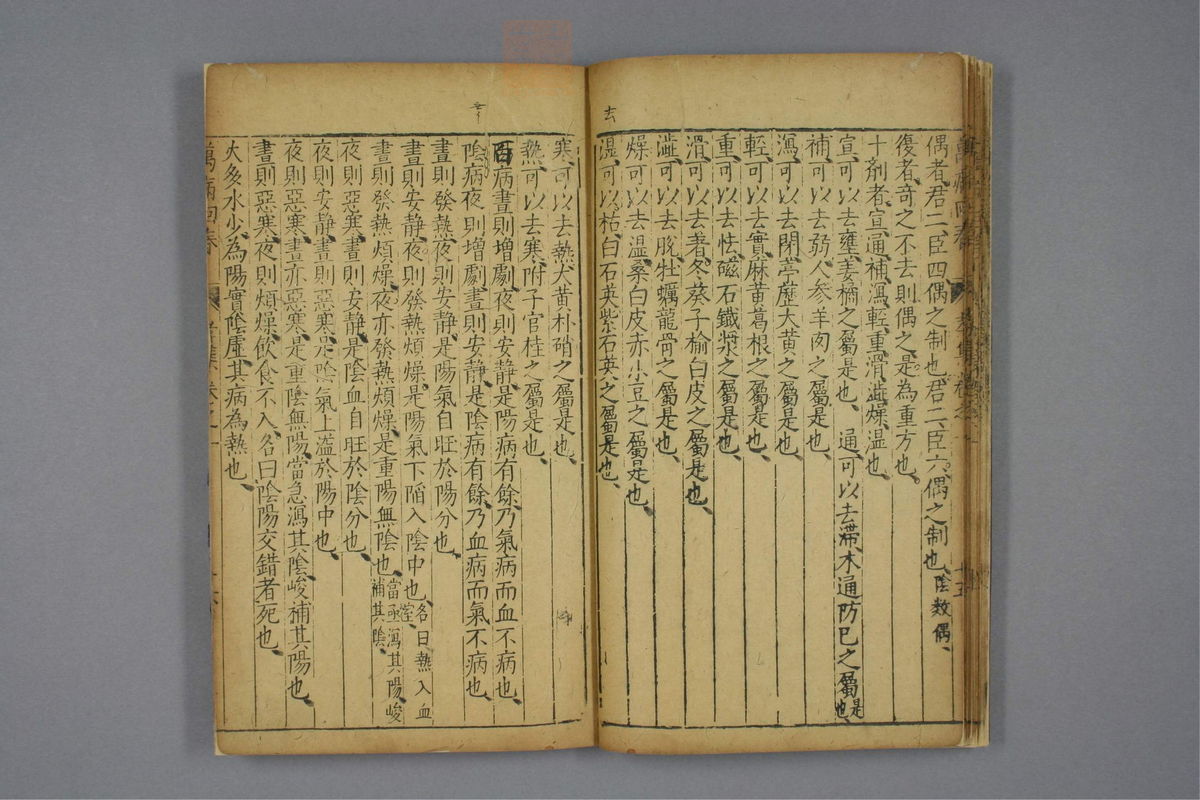 偶者君二臣四偶之制也君二臣六偶之制也陰数偶
復者奇之不去則偶之是為重方也
十剤者宣通補瀉輕重滑澁燥温也
宣可以去壅姜橘之屬是也通可以去滯木通防巳之屬是也
補可以去弱人參羊肉之屬是也
瀉可以去閉葶藶大黄之屬是也
輕可以去實麻黄葛根之屬是也
重可以去怯磁石鐵漿之屬是也
滑可以去着冬葵子榆白皮之屬是也
澁可以去脫牡蠣龍骨之屬是也
燥可以去温桑白皮赤小豆之屬是也
濕可以去枯白石英紫石英之屬是也
去
寒可以去熱大黄朴硝之屬是也
熱可以去寒附子官桂之屬是也
百病晝則增劇夜則安靜是陽病有餘乃氣病而血不病也
陰病夜則增劇晝則安靜是陰病有餘乃血病而氣不病也
晝則發熱夜則安靜是陽氣自旺於陽分也
晝則安靜夜則發熱煩燥是陽氣下陷入陰中也名曰熱入血室
晝則發熱煩燥夜亦發熱煩燥是重陽無陰也當亟瀉其陽峻補其陰
夜則惡寒晝則安靜是陰血自旺於陰分也
夜則安靜晝則惡寒是陰氣上溢於陽中也
夜則惡寒晝亦惡寒是重陰無陽當急瀉其陰峻補其陽也
晝則惡寒夜則煩燥飲食不入名曰陰陽交錯者死也
火多水少為陽實陰虛其病為熱也
萬病回春
卷之一